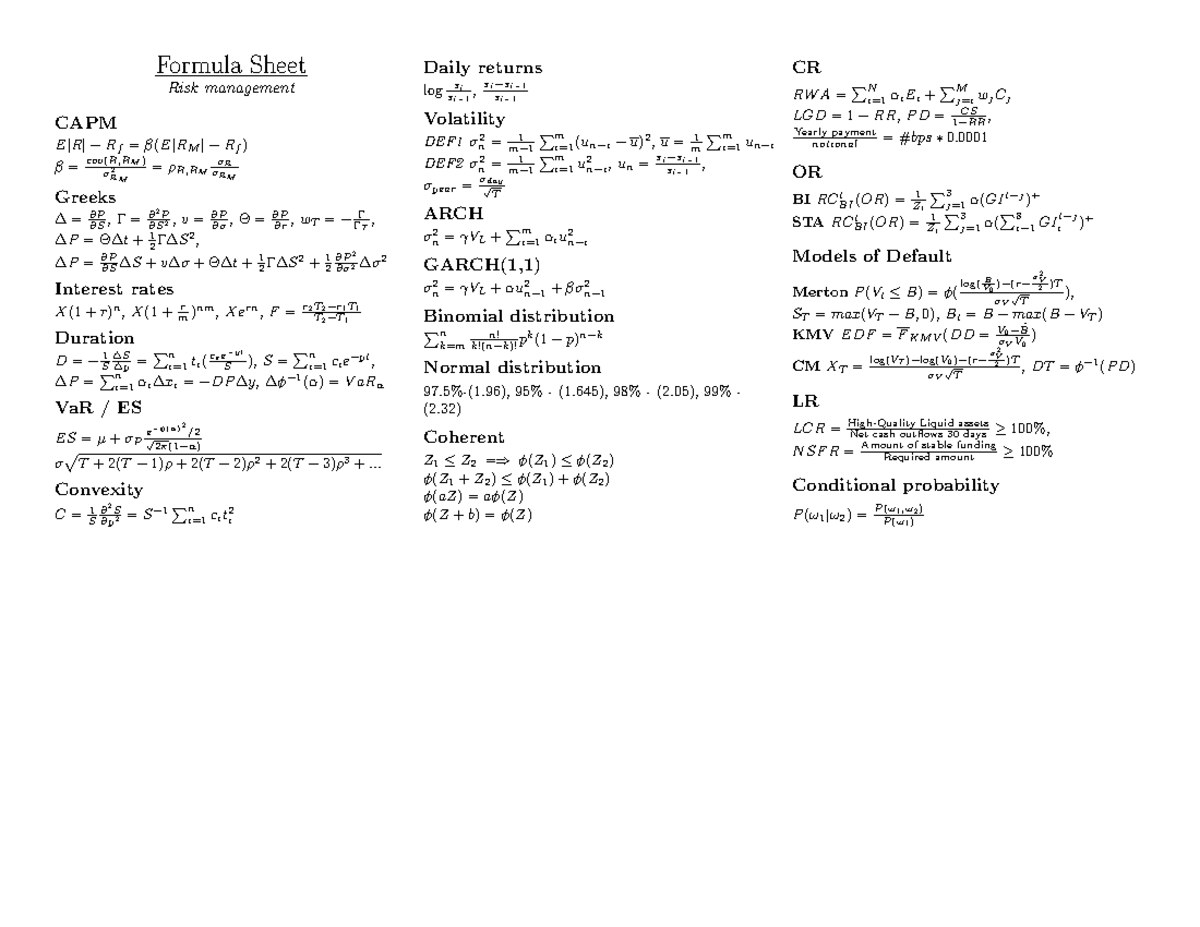 Formula Sheet
Risk management
CAPM
E[R] − R_f = β(E[R_M] − R_f)
β = cov(R,R_M)/σ²_{R_M} = ρ_{R,RM} σ_R/σ_{R_M}
Greeks
Δ = ∂P/∂S, Γ = ∂²P/∂S², υ = ∂P/∂σ, Θ = ∂P/∂τ, w_T = −Γ/Γ_T,
ΔP = ΘΔt + ½ΓΔS²,
ΔP = ∂P/∂S ΔS + υΔσ + ΘΔt + ½ΓΔS² + ½ ∂P²/∂σ² Δσ²
Interest rates
X(1 + r)^n, X(1 + r/m)^{nm}, Xe^{rn}, F = (r₂T₂−r₁T₁)/(T₂−T₁)
Duration
D = −(1/S)(ΔS/Δy) = ∑_{i=1}^n t_i(c_i e^{−yt}/S), S = ∑_{i=1}^n c_i e^{−yt},
ΔP = ∑_{i=1}^n α_iΔx_i = −DPΔy, Δϕ^{−1}(α) = VaR_α
VaR / ES
ES = μ + σp e^{−ϕ(α)²}/2 / (√2π(1−α))
σ√(T + 2(T − 1)ρ + 2(T − 2)ρ² + 2(T − 3)ρ³ + ...)
Convexity
C = (1/S)(∂²S/∂y²) = S^{−1} ∑_{i=1}^n c_i t_i²
Daily returns
log s_i/s_{i−1}, (s_i−s_{i−1})/s_{i−1}
Volatility
DEF1 σ_n² = 1/(m−1) ∑_{i=1}^m (u_{n−i} − u̅)², u̅ = 1/m ∑_{i=1}^m u_{n−i}
DEF2 σ_n² = 1/(m−1) ∑_{i=1}^m u²_{n−i}, u_n = (s_i−s_{i−1})/s_{i−1},
σ_year = σ_day/√T
ARCH
σ_n² = γV_L + ∑_{i=1}^m α_i u²_{n−i}
GARCH(1,1)
σ_n² = γV_L + αu²_{n−1} + βσ²_{n−1}
Binomial distribution
∑_{k=m}^n n!/(k!(n−k)!) p^k(1 − p)^{n−k}
Normal distribution
97.5%-(1.96), 95% - (1.645), 98% - (2.05), 99% -
(2.32)
Coherent
Z₁ ≤ Z₂ ⟹ ϕ(Z₁) ≤ ϕ(Z₂)
ϕ(Z₁ + Z₂) ≤ ϕ(Z₁) + ϕ(Z₂)
ϕ(aZ) = aϕ(Z)
ϕ(Z + b) = ϕ(Z)
CR
RWA = ∑_{i=1}^N α_iE_i + ∑_{j=i}^M w_jC_j
LGD = 1 − RR, PD = CS/(1−RR),
Yearly payment/notional = #bps ∗ 0.0001
OR
BI RC^t_{BI}(OR) = 1/Z_t ∑_{j=1}^3 α(GI^{t−j})⁺
STA RC^t_{BI}(OR) = 1/Z_t ∑_{j=1}^3 α(∑_{i−1}^8 GI_i^{t−j})⁺
Models of Default
Merton P(V_t ≤ B) = ϕ((log(B/V₀)−(r−σ_V²/2)T)/(σ_V√T)),
S_T = max(V_T − B, 0), B_t = B − max(B − V_T)
KMV EDF = F̅_{KMV}(DD = (V₀−B̃)/(σ_V V₀))
CM X_T = (log(V_T)−log(V₀)−(r−σ_V²/2)T)/(σ_V√T), DT = ϕ^{−1}(PD)
LR
LCR = High-Quality Liquid assets/Net cash outflows 30 days ≥ 100%,
NSFR = Amount of stable funding/Required amount ≥ 100%
Conditional probability
P(ω₁|ω₂) = P(ω₁,ω₂)/P(ω₁)